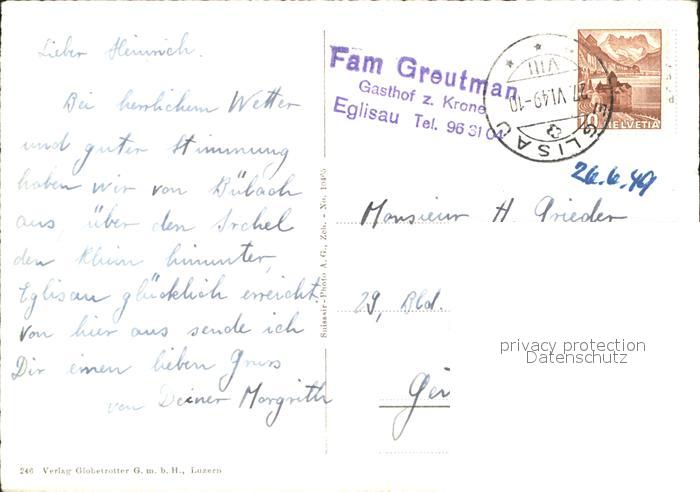 Lieber Heinrich.
Bei herrlichem Wetter
und guter Stimmung
haben wir von Bülach
aus, über den Irchel
den Rhein hinunter,
Eglisau glücklich erreicht.
Von hier aus sende ich
Dir einen lieben Gruss
von Deiner Margrith
246 Verlag Globetrotter G. m. b. H., Luzern
Swissair-Photo A. G., Zch. - No.
Fam Greutman
Gasthof z. Krone
Eglisau Tel. 96 31 04
VIII
27.VI.49-10
EGLISAU
10 HELVETIA
26.6.49
Monsieur H Prieder
29, Bld.
privacy protection
Datenschutz